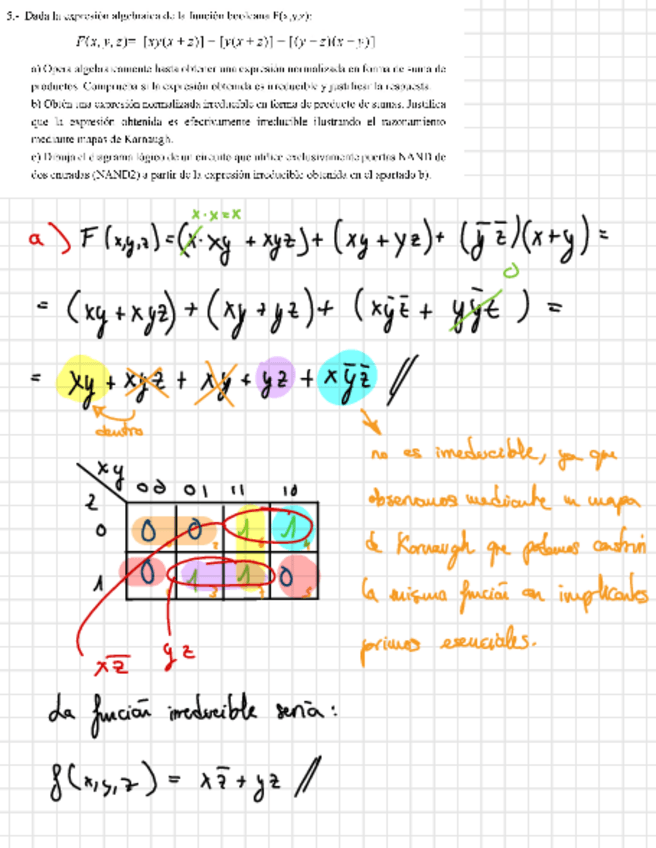 5.- Dada la expresión algebraica de la función booleana F(x,y,z):
F(x, y, z)= [xy(x + z)] – [y(x + z)] – [(y – z)(x – y)]
a) Opera algebraicamente hasta obtener una expresión normalizada en forma de suma de
productos. Comprueba si la expresión obtenida es irreducible y justificar la respuesta.
b) Obtén una expresión normalizada irreducible en forma de producto de sumas. Justifica
que la expresión obtenida es efectivamente irreducible ilustrando el razonamiento
mediante mapas de Karnaugh.
c) Dibuja el diagrama lógico de un circuito que utilice exclusivamente puertas NAND de
dos entradas (NAND2) a partir de la expresión irreducible obtenida en el apartado b).
x·x=x
a) F(x,y,z)=(x·xy + xyz)+(xy+yz)+(y̅ z̅)(x+y)=
0
= (xy+xyz)+(xy+yz)+(xy̅z̅ + yy̅z̅) =
= xy + xyz + xy + yz + xy̅z̅ //
dentro
no es irreducible, ya que
observamos mediante un mapa
de Karnaugh que podemos construir
la misma función con implicantes
primos esenciales.
xy 00 01 11 10
z
0 0 0 1 1
1 0 1 1 0
xz̅ yz
La función irreducible sería:
f(x,y,z) = xz̅ + yz //